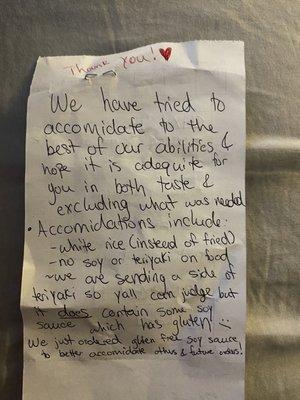 Thank you! ♥
We have tried to
accomidate to the
best of our abilities &
hope it is adequite for
you in both taste &
excluding what was needed
• Accomidations include:
- white rice (instead of fried)
- no soy or teriyaki on food
~ we are sending a side of
teriyaki so yall can judge but
it does contain some soy
sauce which has gluten! :)
We just ordered gluten free soy sauce
to better accomidate othrs & future orders!